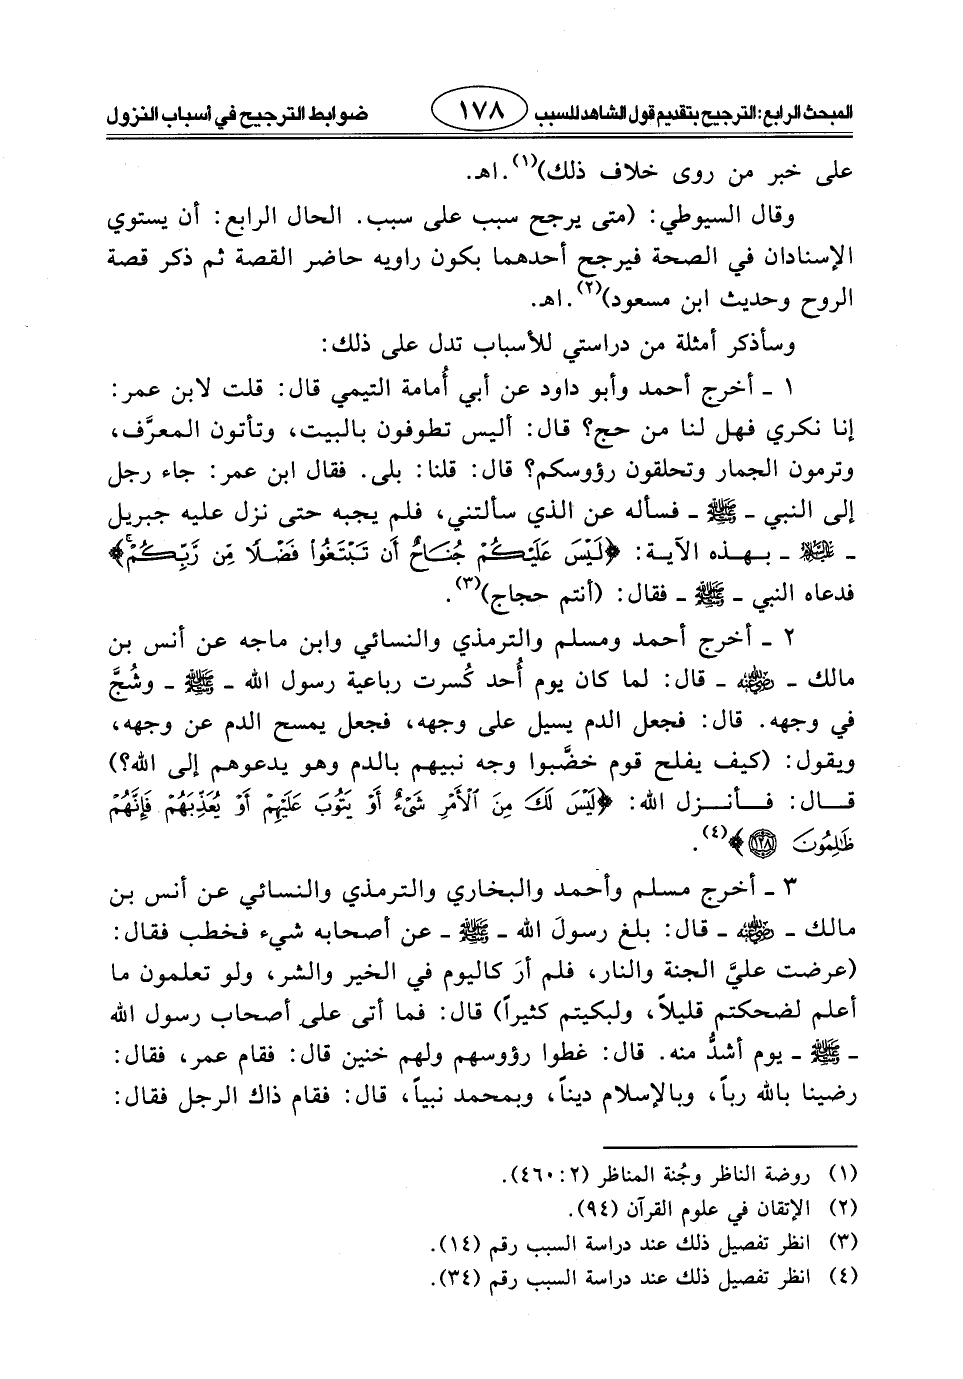 المبحث الرابع: الترجيح بتقديم قول الشاهد للسبب ١٧٨ ضوابط الترجيح في أسباب النزول
على خبر من روى خلاف ذلك)(١). اهـ.
وقال السيوطي: (متى يرجح سبب على سبب. الحال الرابع: أن يستوي
الإسنادان في الصحة فيرجح أحدهما بكون راويه حاضر القصة ثم ذكر قصة
الروح وحديث ابن مسعود)(٢). اهـ.
وسأذكر أمثلة من دراستي للأسباب تدل على ذلك:
١ ـ أخرج أحمد وأبو داود عن أبي أُمامة التيمي قال: قلت لابن عمر:
إنا نكري فهل لنا من حج؟ قال: أليس تطوفون بالبيت، وتأتون المعرَّف،
وترمون الجمار وتحلقون رؤوسكم؟ قال: قلنا: بلى. فقال ابن عمر: جاء رجل
إلى النبي ـ ﷺ ـ فسأله عن الذي سألتني، فلم يجبه حتى نزل عليه جبريل
ـ عليه السلام ـ بهذه الآية: ﴿لَيْسَ عَلَيْكُمْ جُنَاحٌ أَن تَبْتَغُوا۟ فَضْلًا مِّن رَّبِّكُمْ ۚ﴾
فدعاه النبي ـ ﷺ ـ فقال: (أنتم حجاج)(٣).
٢ ـ أخرج أحمد ومسلم والترمذي والنسائي وابن ماجه عن أنس بن
مالك ـ رضي الله عنه ـ قال: لما كان يوم أُحد كُسرت رباعية رسول الله ـ ﷺ ـ وشُجَّ
في وجهه. قال: فجعل الدم يسيل على وجهه، فجعل يمسح الدم عن وجهه،
ويقول: (كيف يفلح قوم خضَّبوا وجه نبيهم بالدم وهو يدعوهم إلى الله؟)
قال: فأنزل الله: ﴿لَيْسَ لَكَ مِنَ ٱلْأَمْرِ شَىْءٌ أَوْ يَتُوبَ عَلَيْهِمْ أَوْ يُعَذِّبَهُمْ فَإِنَّهُمْ
ظَـٰلِمُونَ ١٢٨﴾(٤).
٣ ـ أخرج مسلم وأحمد والبخاري والترمذي والنسائي عن أنس بن
مالك ـ رضي الله عنه ـ قال: بلغ رسولَ الله ـ ﷺ ـ عن أصحابه شيء فخطب فقال:
(عرضت عليَّ الجنة والنار، فلم أرَ كاليوم في الخير والشر، ولو تعلمون ما
أعلم لضحكتم قليلاً، ولبكيتم كثيراً) قال: فما أتى على أصحاب رسول الله
ـ ﷺ ـ يوم أشدُّ منه. قال: غطوا رؤوسهم ولهم خنين قال: فقام عمر، فقال:
رضينا بالله رباً، وبالإسلام ديناً، وبمحمد نبياً، قال: فقام ذاك الرجل فقال:
(١) روضة الناظر وجُنة المناظر (٢: ٤٦٠).
(٢) الإتقان في علوم القرآن (٩٤).
(٣) انظر تفصيل ذلك عند دراسة السبب رقم (١٤).
(٤) انظر تفصيل ذلك عند دراسة السبب رقم (٣٤).